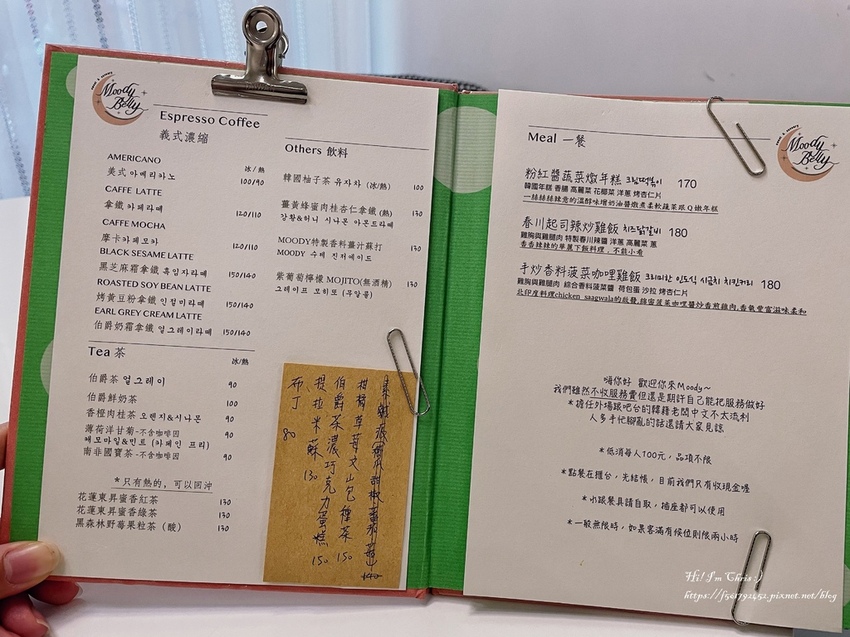 Moody Belly
Espresso Coffee
義式濃縮
冰/熱
AMERICANO
美式 아메리카노 100/90
CAFFE LATTE
拿鐵 카페라떼 120/110
CAFFE MOCHA
摩卡 카페모카 120/110
BLACK SESAME LATTE
黑芝麻拿鐵 흑임자라떼 150/140
ROASTED SOY BEAN LATTE
烤黃豆粉拿鐵 인절미라떼 150/140
EARL GREY CREAM LATTE
伯爵奶霜拿鐵 얼그레이라떼 150/140
Tea 茶
冰/熱
伯爵茶 얼그레이 90
伯爵鮮奶茶 100
香橙肉桂茶 오렌지&시나몬 90
薄荷洋甘菊-不含咖啡因 90
캐모마일&민트 (카페인 프리)
南非國寶茶-不含咖啡因 90
*只有熱的,可以回沖
花蓮東昇蜜香紅茶 130
花蓮東昇蜜香綠茶 130
黑森林野莓果粒茶(酸) 130
Others 飲料
韓國柚子茶 유자차 (冰/熱) 100
薑黃蜂蜜肉桂杏仁拿鐵 (熱) 130
강황&허니 시나몬 아몬드라떼
MOODY特製香料薑汁蘇打 130
MOODY 수제 진저에이드
紫葡萄檸檬 MOJITO(無酒精) 130
그레이프 모히또 (무알콜)
柑橘草莓文山包種茶 150
伯爵茶濃巧克力蛋糕 150
提拉米蘇 130
布丁 80
Meal 一餐
Moody Belly
粉紅醬蔬菜燉年糕 크림떡볶이 170
韓國年糕 香腸 高麗菜 花椰菜 洋蔥 烤杏仁片
一絲絲絲辣意的溫醇味增奶油醬燉煮柔軟蔬菜跟Q嫩年糕
春川起司辣炒雞飯 치즈닭갈비 180
雞胸與雞腿肉 特製春川辣醬 洋蔥 高麗菜 蔥
香香辣辣的華麗下飯料理,不能小看
手炒香料菠菜咖哩雞飯 크리미한 인도식 시금치 치킨커리 180
雞胸與雞腿肉 綜合香料菠菜醬 荷包蛋 沙拉 烤杏仁片
北伊度料理chicken saagwala的啟發,綿蜜菠菜咖哩醬炒香煎雞肉,香氣豐富滋味柔和
嗨你好 歡迎你來Moody~
我們雖然不收服務費但還是期許自己能把服務做好
*擔任外場跟吧台的韓籍老闆中文不太流利
人多手忙腳亂的話還請大家見諒
*低消每人100元,品項不限
*點餐在櫃台,先結帳,目前我們只有收現金喔
*水跟餐具請自取,插座都可以使用
*一般無限時,如果客滿有候位則限兩小時
Hi! I'm Chris :)
https://j501792452.pixnet.net/blog